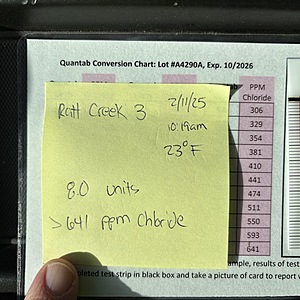 Quantab Conversion Chart: Lot #A4290A, Exp. 10/2026
PPM
Chloride
306
329
354
381
410
441
474
511
550
593
641
Rott Creek 3
2/11/25
10:19am
23°F
8.0 units
>641 ppm Chloride
ample, results of test
pleted test strip in black box and take a picture of card to report